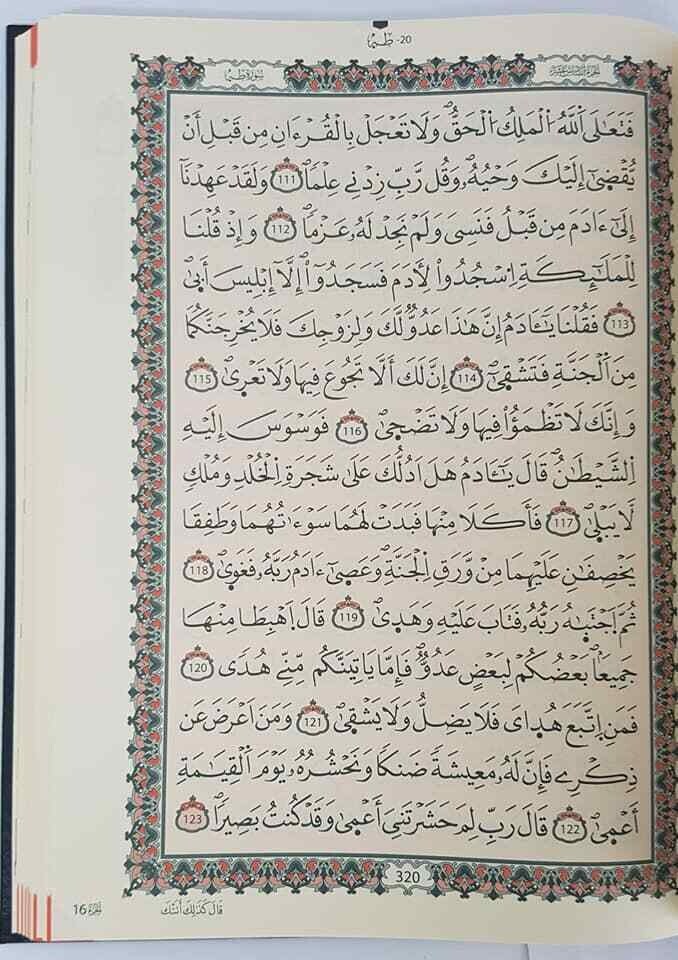 20- طه
الجزء السادس عشر
سورة طه
فَتَعَٰلَى اَ۬للَّهُ اُ۬لْمَلِكُ اُ۬لْحَقُّۖ وَلَا تَعْجَلْ بِالْقُرْءَانِ مِن قَبْلِ أَنْ
يُّقْضَىٰٓ إِلَيْكَ وَحْيُهُۥۖ وَقُل رَّبِّ زِدْنِے عِلْماٗۖ 111 وَلَقَدْ عَهِدْنَآ
إِلَىٰٓ ءَادَمَ مِن قَبْلُ فَنَسِيَ وَلَمْ نَجِدْ لَهُۥ عَزْماٗۖ 112 وَإِذْ قُلْنَا
لِلْمَلَٰٓئِكَةِ اِ۟سْجُدُواْ لِأٓدَمَ فَسَجَدُوٓاْ إِلَّآ إِبْلِيسَ أَبَىٰ
113 فَقُلْنَا يَٰٓـَٔادَمُ إِنَّ هَٰذَا عَدُوّٞ لَّكَ وَلِزَوْجِكَ فَلَا يُخْرِجَنَّكُمَا
مِنَ اَ۬لْجَنَّةِ فَتَشْقَىٰٓۖ 114 إِنَّ لَكَ أَلَّا تَجُوعَ فِيهَا وَلَا تَعْرَىٰۖ 115
وَإِنَّكَ لَا تَظْمَؤُاْ فِيهَا وَلَا تَضْحَىٰۖ 116 فَوَسْوَسَ إِلَيْهِ
اِ۬لشَّيْطَٰنُۖ قَالَ يَٰٓـَٔادَمُ هَلَ اَدُلُّكَ عَلَىٰ شَجَرَةِ اِ۬لْخُلْدِ وَمُلْكٖ
لَّا يَبْلَىٰۖ 117 فَأَكَلَا مِنْهَا فَبَدَتْ لَهُمَا سَوْءَٰتُهُمَا وَطَفِقَا
يَخْصِفَٰنِ عَلَيْهِمَا مِنْ وَّرَقِ اِ۬لْجَنَّةِۖ وَعَصَىٰٓ ءَادَمُ رَبَّهُۥ فَغَوَىٰۖ 118
ثُمَّ اَ۪جْتَبَٰهُ رَبُّهُۥ فَتَابَ عَلَيْهِ وَهَدَىٰۖ 119 قَالَ اَ۪هْبِطَا مِنْهَا
جَمِيعاَۢۖ بَعْضُكُمْ لِبَعْضٍ عَدُوّٞۖ فَإِمَّا يَاتِيَنَّكُم مِّنِّے هُديٗ 120
فَمَنِ اِ۪تَّبَعَ هُد۪ايَ فَلَا يَضِلُّ وَلَا يَشْقَىٰۖ 121 وَمَنَ اَعْرَضَ عَن
ذِكْرِے فَإِنَّ لَهُۥ مَعِيشَةٗ ضَنكاٗ وَنَحْشُرُهُۥ يَوْمَ اَ۬لْقِيَٰمَةِ
أَعْمَىٰۖ 122 قَالَ رَبِّ لِمَ حَشَرْتَنِيَ أَعْمَىٰ وَقَدْ كُنتُ بَصِيراٗۖ 123
320
قَالَ كَذَٰلِكَ أَتَتْكَ
الجزء 16